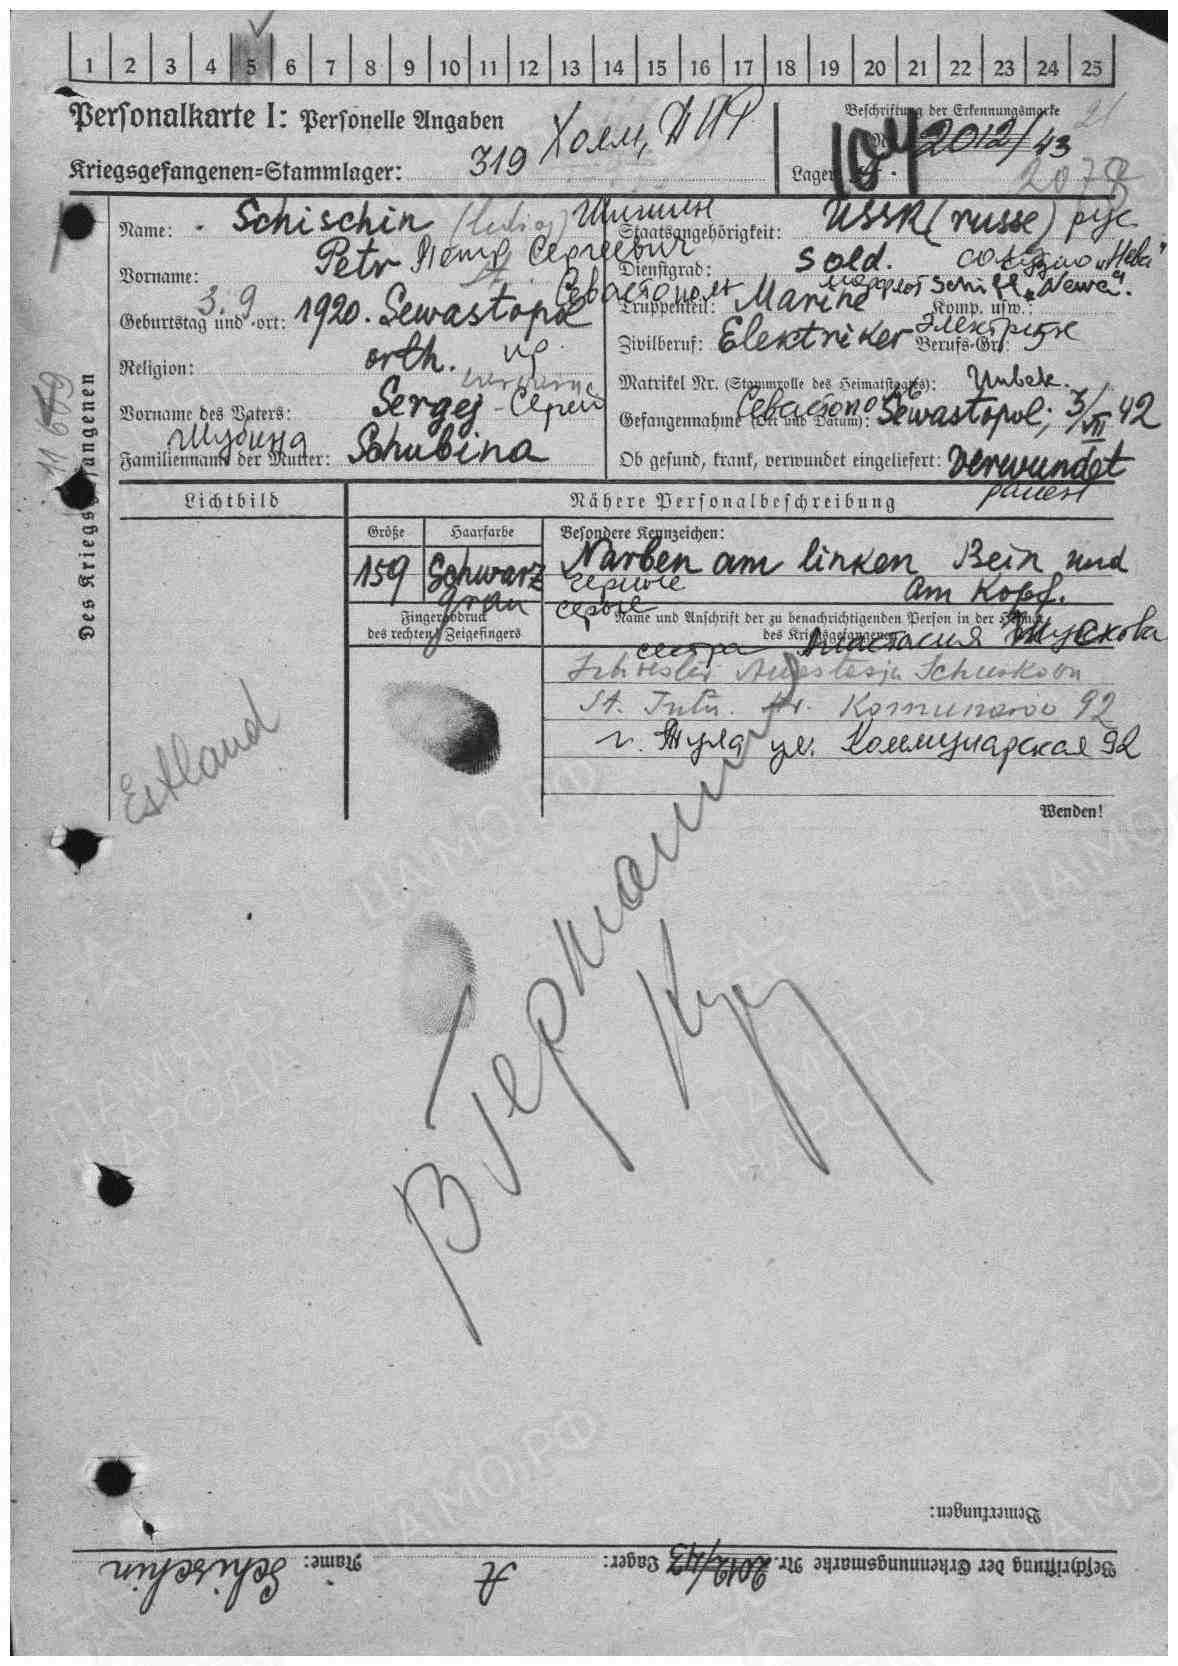 1 2 3 4 5 6 7 8 9 10 11 12 13 14 15 16 17 18 19 20 21 22 23 24 25
Personalkarte I: Personelle Angaben
Beschriftung der Erkennungsmarke
21
Холм,
Nr. 2012/43
Kriegsgefangenen=Stammlager: 319
Lager:
Des Kriegsgefangenen
Name: Schischin (ledig) Шишин
Staatsangehörigkeit: USSR (russe) рус
Vorname: Petr Петр Сергеевич
Dienstgrad: Sold. солд
"Нева"
Севастополь
Truppenteil: Marine
Schiff "Newa".
Komp. usw.:
Geburtstag und -ort: 3.9. 1920. Sewastopol
Zivilberuf: Elektriker
Berufs-Gr.:
Religion: orth.
Matrikel Nr. (Stammrolle des Heimatstaates): Unbek.
Vorname des Vaters: Sergej - Сергей
Севастополь
Gefangennahme (Ort und Datum): Sewastopol; 3/VII 42
Шубина
Familienname der Mutter: Schubina
Ob gesund, krank, verwundet eingeliefert: verwundet
ранен
Lichtbild
Nähere Personalbeschreibung
Größe
Haarfarbe
Besondere Kennzeichen:
159
Schwarz
Narben am linken Bein und
am Kopf.
grau
серые
Fingerabdruck
des rechten Zeigefingers
Name und Anschrift der zu benachrichtigenden Person in der Heimat
des Kriegsgefangenen
сестра Анастасия
Schwester Anastasja
St. Tula. Str. Komunarov 92
г. Тула ул. Коммунарская 92
Estland
Wenden!
В Германии
Bemerkungen:
Beschriftung der Erkennungsmarke Nr. 2012/43 Lager: A Name: Schischin
ЦАМО.РФ
ПАМЯТЬ
НАРОДА